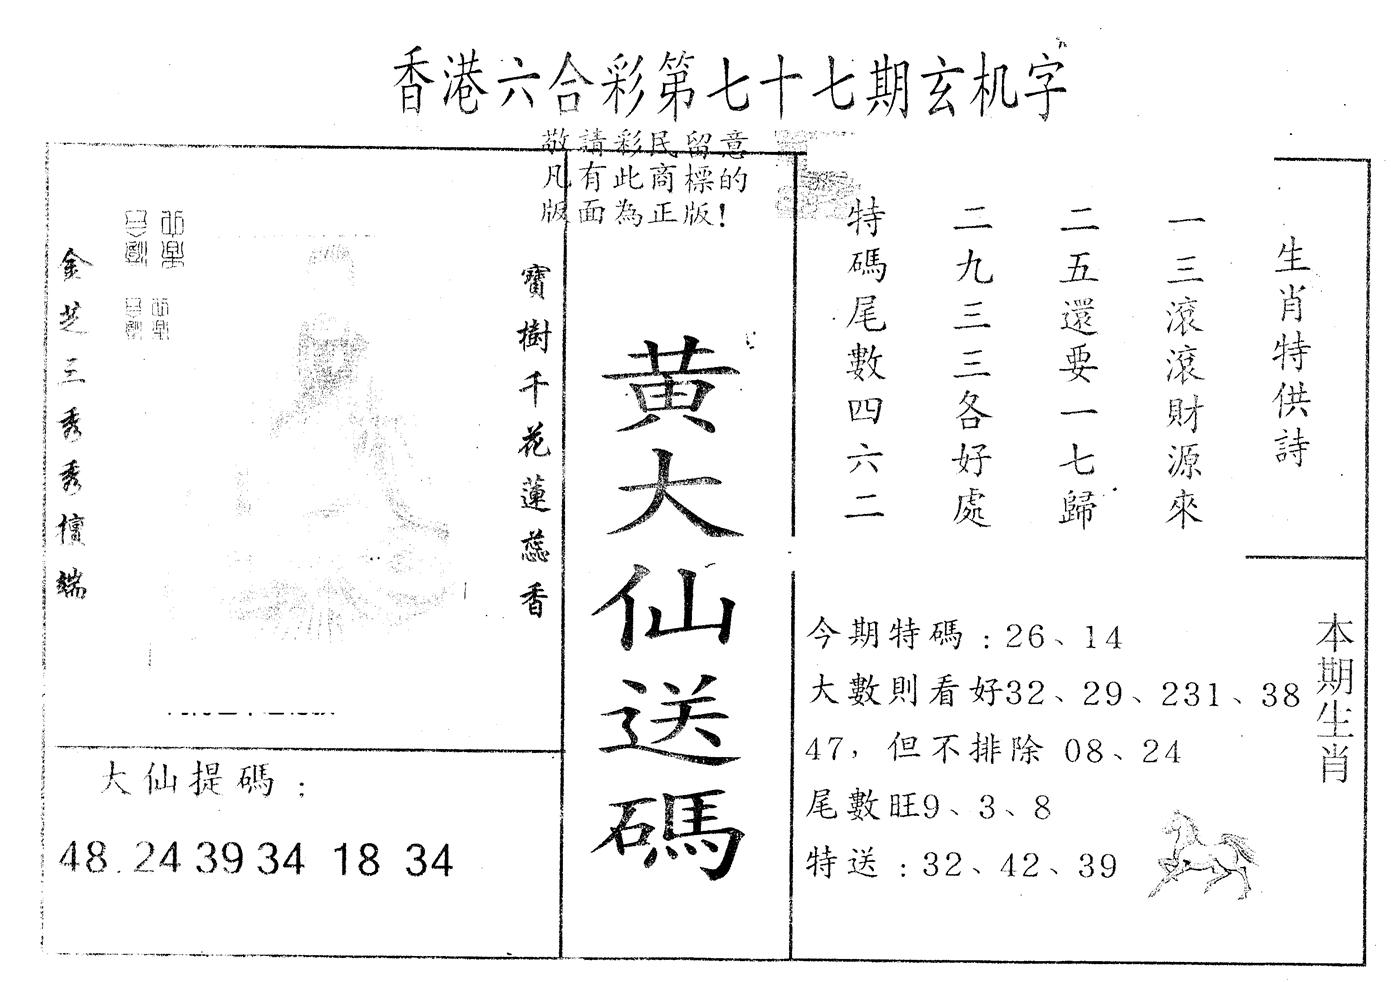 香港六合彩第七十七期玄机字
敬請彩民留意
凡有此商標的
版面為正版!
生肖特供詩
一三滾滾財源來
二五還要一七歸
二九三三各好處
特碼尾數四六二
黄大仙送碼
寶樹千花蓮蕊香
金芝三秀秀檀端
大仙提碼：
48.24 39 34 18 34
本期生肖
今期特碼：26、14
大數則看好32、29、231、38
47，但不排除 08、24
尾數旺9、3、8
特送：32、42、39